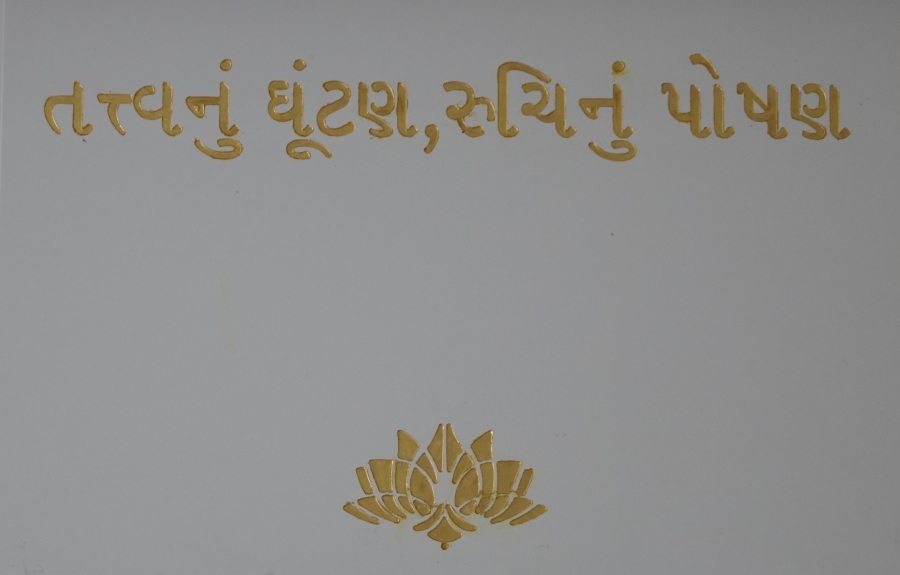 તત્ત્વનું ઘૂંટણ,રુચિનું પોષણ